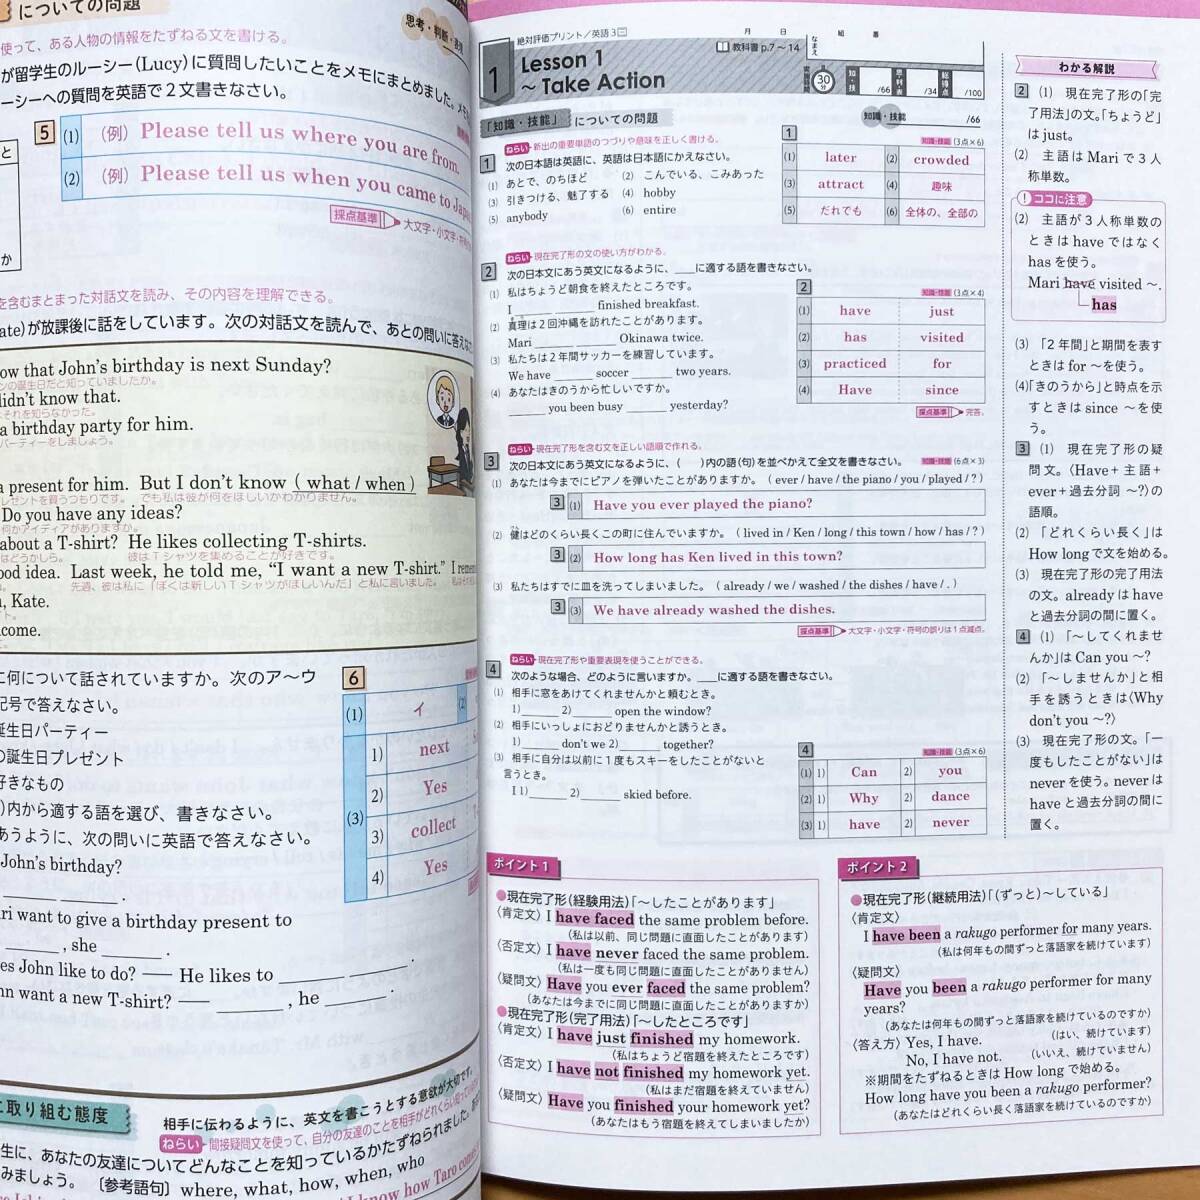 についての問題
思考・判断・表現
使って、ある人物の情報をたずねる文を書ける。
が留学生のルーシー(Lucy)に質問したいことをメモにまとめました。メモ
ーシーへの質問を英語で2文書きなさい。
5
(1) (例) Please tell us where you are from.
(2) (例) Please tell us when you came to Japa
採点基準 大文字・小文字・符号
と
か
を含むまとまった対話文を読み、その内容を理解できる。
ate)が放課後に話をしています。次の対話文を読んで、あとの問いに答えな
ow that John's birthday is next Sunday?
ンの誕生日だと知っていましたか。
didn't know that.
それを知らなかった。
a birthday party for him.
パーティーをしましょう。
a present for him. But I don't know ( what / when )
レゼントを買うつもりです。 でも私は彼が何をほしいかわかりません。
Do you have any ideas?
何かアイディアがありますか。
about a T-shirt? He likes collecting T-shirts.
はどうかしら。 彼はTシャツを集めることが好きです。
ood idea. Last week, he told me, “I want a new T-shirt.” I reme
先週、彼は私に「ぼくは新しいTシャツがほしいんだ」と私に言いました。
, Kate.
come.
に何について話されていますか。次のア〜ウ
記号で答えなさい。
誕生日パーティー
の誕生日プレゼント
好きなもの
)内から適する語を選び、書きなさい。
あうように、次の問いに英語で答えなさい。
John's birthday?
6
(1) イ (2)
(3)
1) next
2) Yes
3) collect
4) Yes
ari want to give a birthday present to
______ , she ______ .
es John like to do? — He likes to ______ ______ .
hn want a new T-shirt? — ______ , he ______ .
に取り組む態度
相手に伝わるように、英文を書こうとする意欲が大切です。
ねらい 間接疑問文を使って、自分の友達のことを相手がどれくらい知っているか
生に、あなたの友達についてどんなことを知っているかたずねられました。
みましょう。 〔参考語句〕 where, what, how, when, who
I know how Taro come
絶対評価プリント/英語3
月 日 組 番
なまえ
1
Lesson 1
〜 Take Action
教科書 p.7〜14
30分
知・技 /66
思・判・表 /34
総得点 /100
「知識・技能」についての問題
知識・技能 /66
ねらい 新出の重要単語のつづりや意味を正しく書ける。
1 次の日本語は英語に、英語は日本語にかえなさい。
(1) あとで、のちほど (2) こんでいる、こみあった
(3) 引きつける、魅了する (4) hobby
(5) anybody (6) entire
1
知識・技能 (3点×6)
(1) later (2) crowded
(3) attract (4) 趣味
(5) だれでも (6) 全体の、全部の
ねらい 現在完了形の文の使い方がわかる。
2 次の日本文にあう英文になるように、___に適する語を書きなさい。
(1) 私はちょうど朝食を終えたところです。
I ______ ______ finished breakfast.
(2) 真理は2回沖縄を訪れたことがあります。
Mari ______ ______ Okinawa twice.
(3) 私たちは2年間サッカーを練習しています。
We have ______ soccer ______ two years.
(4) あなたはきのうから忙しいですか。
______ you been busy ______ yesterday?
2
知識・技能 (3点×4)
(1) have just
(2) has visited
(3) practiced for
(4) Have since
採点基準 完答。
ねらい 現在完了形を含む文を正しい語順で作れる。
3 次の日本文にあう英文になるように、( )内の語(句)を並べかえて全文を書きなさい。 知識・技能 (6点×3)
(1) あなたは今までにピアノを弾いたことがありますか。 ( ever / have / the piano / you / played / ? )
3 (1) Have you ever played the piano?
(2) 健はどのくらい長くこの町に住んでいますか。 ( lived in / Ken / long / this town / how / has / ? )
3 (2) How long has Ken lived in this town?
(3) 私たちはすでに皿を洗ってしまいました。 ( already / we / washed / the dishes / have / . )
3 (3) We have already washed the dishes.
採点基準 大文字・小文字・符号の誤りは1点減点。
ねらい 現在完了形や重要表現を使うことができる。
4 次のような場合、どのように言いますか。___に適する語を書きなさい。
(1) 相手に窓をあけてくれませんかと頼むとき。
1)______ 2)______ open the window?
(2) 相手にいっしょにおどりませんかと誘うとき。
1)______ don't we 2)______ together?
(3) 相手に自分は以前に1度もスキーをしたことがないと
言うとき。
I 1)______ 2)______ skied before.
4
知識・技能 (3点×6)
(1) 1) Can 2) you
(2) 1) Why 2) dance
(3) 1) have 2) never
ポイント1
●現在完了形(経験用法)「〜したことがあります」
〈肯定文〉 I have faced the same problem before.
(私は以前、同じ問題に直面したことがあります)
〈否定文〉 I have never faced the same problem.
(私は一度も同じ問題に直面したことがありません)
〈疑問文〉 Have you ever faced the same problem?
(あなたは今までに同じ問題に直面したことがありますか)
●現在完了形(完了用法)「〜したところです」
〈肯定文〉 I have just finished my homework.
(私はちょうど宿題を終えたところです)
〈否定文〉 I have not finished my homework yet.
(私はまだ宿題を終えていません)
〈疑問文〉 Have you finished your homework yet?
(あなたはもう宿題を終えてしまいましたか)
ポイント2
●現在完了形(継続用法)「(ずっと)〜している」
〈肯定文〉
I have been a rakugo performer for many years.
(私は何年もの間ずっと落語家を続けています)
〈疑問文〉
Have you been a rakugo performer for many
years?
(あなたは何年もの間ずっと落語家を続けているのですか)
〈答え方〉 Yes, I have. (はい、続けています)
No, I have not. (いいえ、続けていません)
※期間をたずねるときは How long で始める。
How long have you been a rakugo performer?
(あなたはどれくらい長く落語家を続けているのですか)
わかる解説
2 (1) 現在完了形の「完
了用法」の文。「ちょうど」
は just。
(2) 主語は Mari で3人
称単数。
! ココに注意
(2) 主語が3人称単数の
ときは have ではなく
has を使う。
Mari have visited 〜.
has
(3) 「2年間」と期間を表す
ときは for 〜を使う。
(4)「きのうから」と時点を示
すときは since 〜を使
う。
3 (1) 現在完了形の疑
問文。〈Have+主語+
ever+過去分詞 〜?〉の
語順。
(2) 「どれくらい長く」は
How long で文を始める。
(3) 現在完了形の完了用法
の文。already は have
と過去分詞の間に置く。
4 (1) 「〜してくれませ
んか」は Can you 〜?
(2) 「〜しませんか」と相
手を誘うときは〈Why
don't you 〜?〉
(3) 現在完了形の文。「一
度もしたことがない」は
never を使う。never は
have と過去分詞の間に
置く。